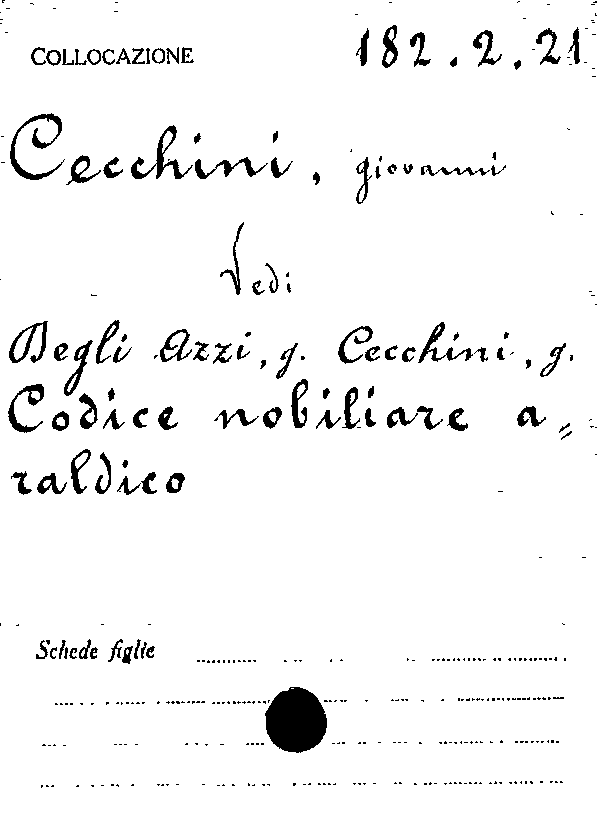 COLLOCAZIONE 182.2.21
Cecchini, giovanni
Vedi
Degli Azzi, g. Cecchini, g.
Codice nobiliare a=
raldico
Schede figlie